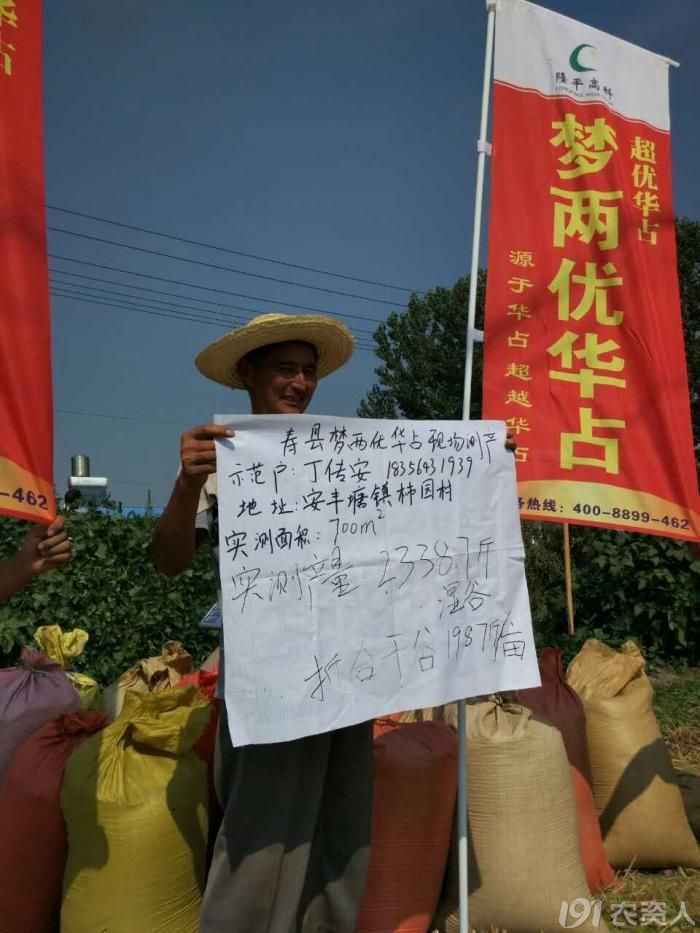 占
-462
隆平高科
超优华占
梦两优华占
源于华占 超越华占
务热线：400-8899-462
寿县梦两优华占现场测产
示范户：丁传安 18356931939
地址：安丰塘镇柿园村
实测面积：700m²
实测产量：2338.7斤
湿谷
折合干谷1987斤/亩
191农资人